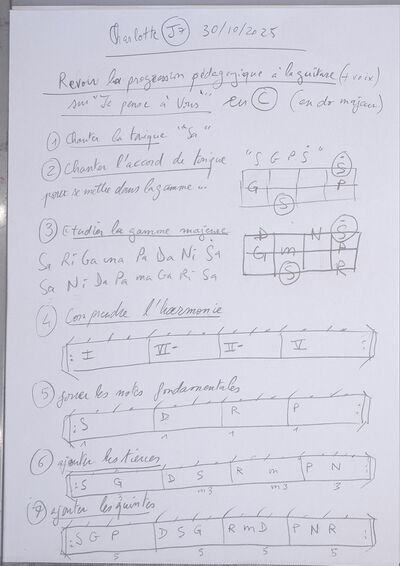 Charlotte J7 30/10/2025
Revoir la progression pédagogique à la guitare (+ voix)
sur "Je pense à Vous" en C (en do majeur)
1 Chanter la tonique "Sa"
2 Chanter l'accord de tonique "S G P Ṡ"
pour se mettre dans la gamme...
Ṡ
G P
S
3 Etudier la gamme majeure
D N Ṡ
G m P
S R
Sa Ri Ga ma Pa Da Ni Ṡa
Sa Ni Da Pa ma Ga Ri Sa
4 Comprendre l'harmonie
I VI- II- V
5 jouer les notes fondamentales
S D R P
1 1 1 1
6 ajouter les tierces
S G D S R m P N
m3 m3 3
7 ajouter les quintes
S G P D S G R m D P N R
5 5 5 5